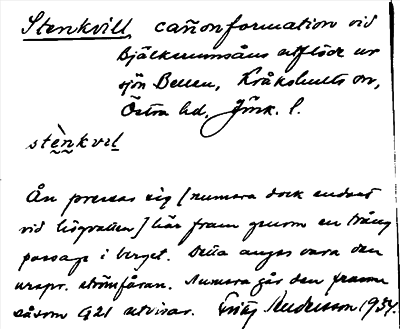 Stenkvill, cañonformation vid
Bjälkerumsåns utflöde ur
sjön Bellen, Kråkshults sn,
Östra hd, Jönk. l.
stènkvil
Ån pressas sig [numera dock endast
vid högvatten] här fram genom en trång
passage i berget. Detta anges vara den
urspr. strömfåran. Numera går den fram
såsom G21 utvisar. Fritz Andersson 1934.